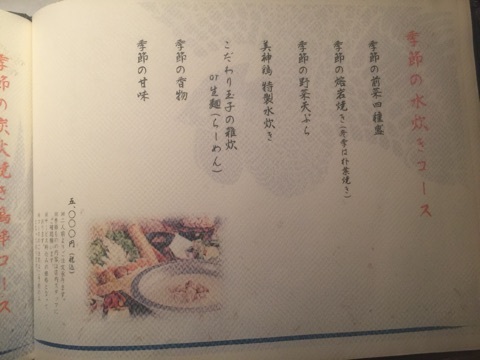 季節の水炊きコース
季節の前菜四種盛
季節の熔岩焼き(冬季は朴葉焼き)
季節の野菜天ぷら
美神鶏 特製水炊き
こだわり玉子の雑炊
or 生麺(らーめん)
季節の香物
季節の甘味
五、〇〇〇円(税込)
季節の炭火焼き鳥コース